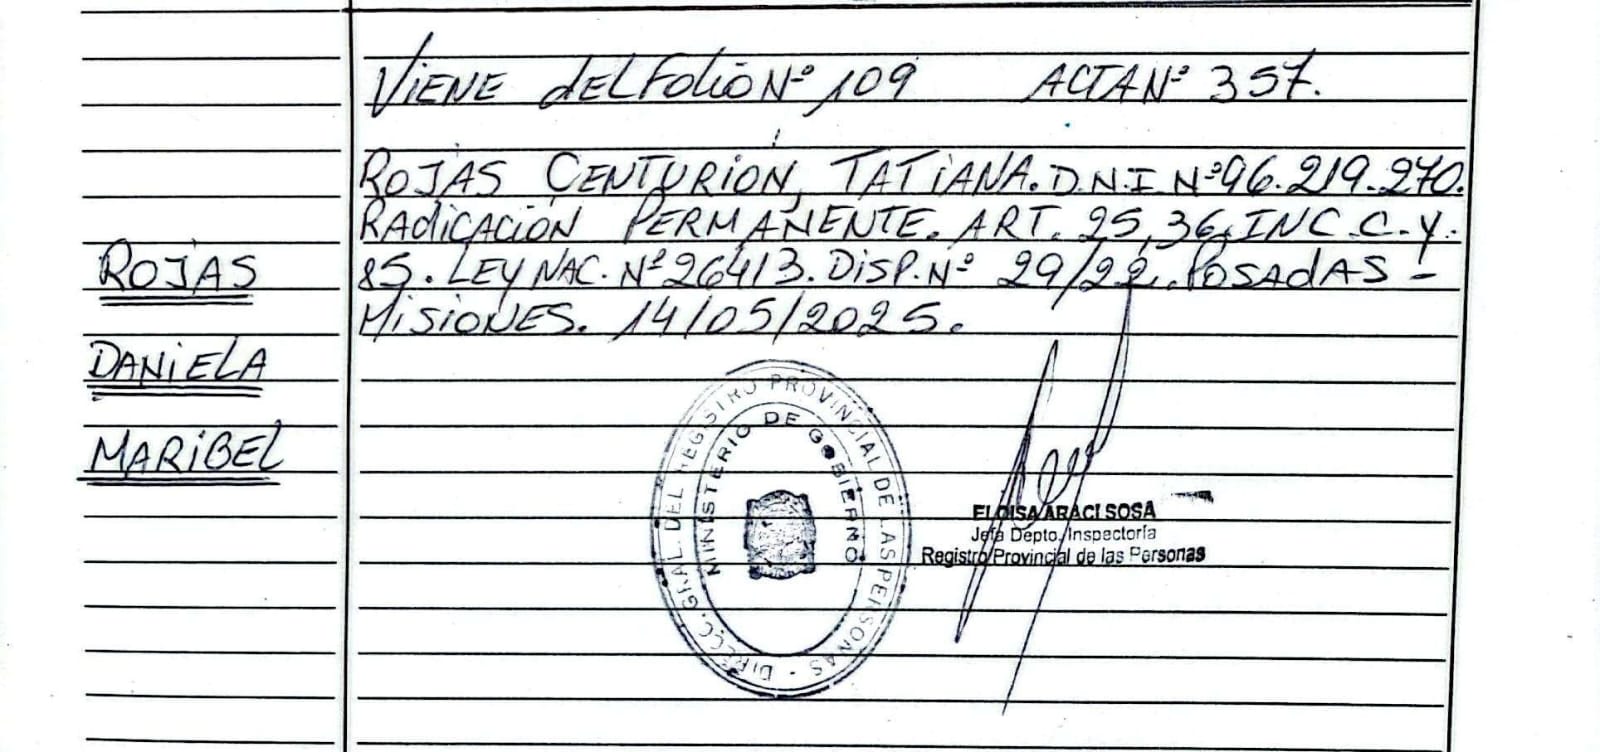 VIENE del Folio Nº 109 ACTA Nº 357.
ROJAS CENTURIÓN, TATIANA. D.N.I Nº 96.219.270.
RADICACIÓN PERMANENTE. ART. 25, 36, INC. C. Y.
85. LEY NAC. Nº 26413. DISP. Nº 29/22. POSADAS -
MISIONES. 14/05/2025.
ROJAS
DANIELA
MARIBEL
DIRECC. GRAL. DEL REGISTRO PROVINCIAL DE LAS PERSONAS -
MINISTERIO DE GOBIERNO
ELOISA ARACI SOSA
Jefa Depto. Inspectoría
Registro Provincial de las Personas